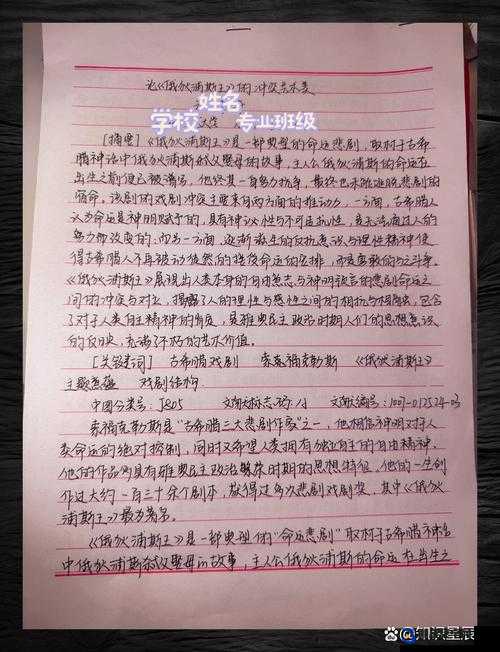 论《俄狄浦斯王》的冲突艺术美
学校
姓名
专业班级
[摘要]《俄狄浦斯王》是一部典型的命运悲剧，取材于古希
腊神话中俄狄浦斯弑父娶母的故事，主人公俄狄浦斯的命运在
出生之前便已被谱写，他终其一身努力抗争，最终也未能逃脱悲剧的
宿命，该剧的戏剧冲突主要来自两方面的推动力，一方面，古希腊人
认为命运是神明赋予的，具有神的性与不可抗性，是无法通过人的
努力而改变的，而另一方面，逐渐滋生的反抗意识与理性精神使
得古希腊人不再被动依然的接受命运的安排，而是勇敢的与之斗争。
《俄狄浦斯王》展现出人类本身的自由意志与神明预言的悲剧命运之
间的冲突与对立，揭露了人的理性与感性之间的相抗与相离，包含
了对于人类自主精神的肯定，是雅典民主政治时期人们的思想意识
的反映，充满了不朽的艺术价值。
[关键词] 古希腊戏剧 索福克勒斯 《俄狄浦斯王》
主题意蕴 戏剧结构
中图分类号：J805 文献标志码：A 文献编号：1007-0125
索福克勒斯是"古希腊三大悲剧作家"之一，他相信神明对于人
类命运的绝对控制，同时又希望人类拥有独立自主的自由精神，
他的作品具有雅典民主政治繁荣时期的思想特征，他的一生创
作过大约一百三十余个剧本，获得过多次悲剧戏剧奖，其中《俄狄
浦斯王》最为著名。
《俄狄浦斯王》是一部典型的"命运悲剧"取材于古希腊神话
中俄狄浦斯弑父娶母的故事，主人公俄狄浦斯的命运在出生之
知识星辰